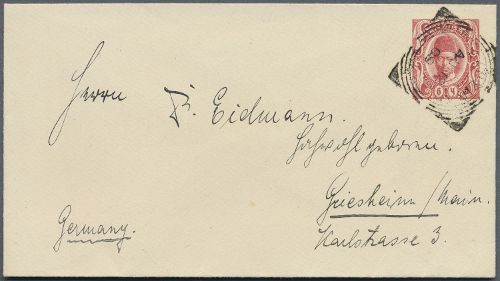 Herrn F. Eidmann.
Hochwohlgeboren.
Griesheim / Main.
Karlstrasse 3.
Germany.